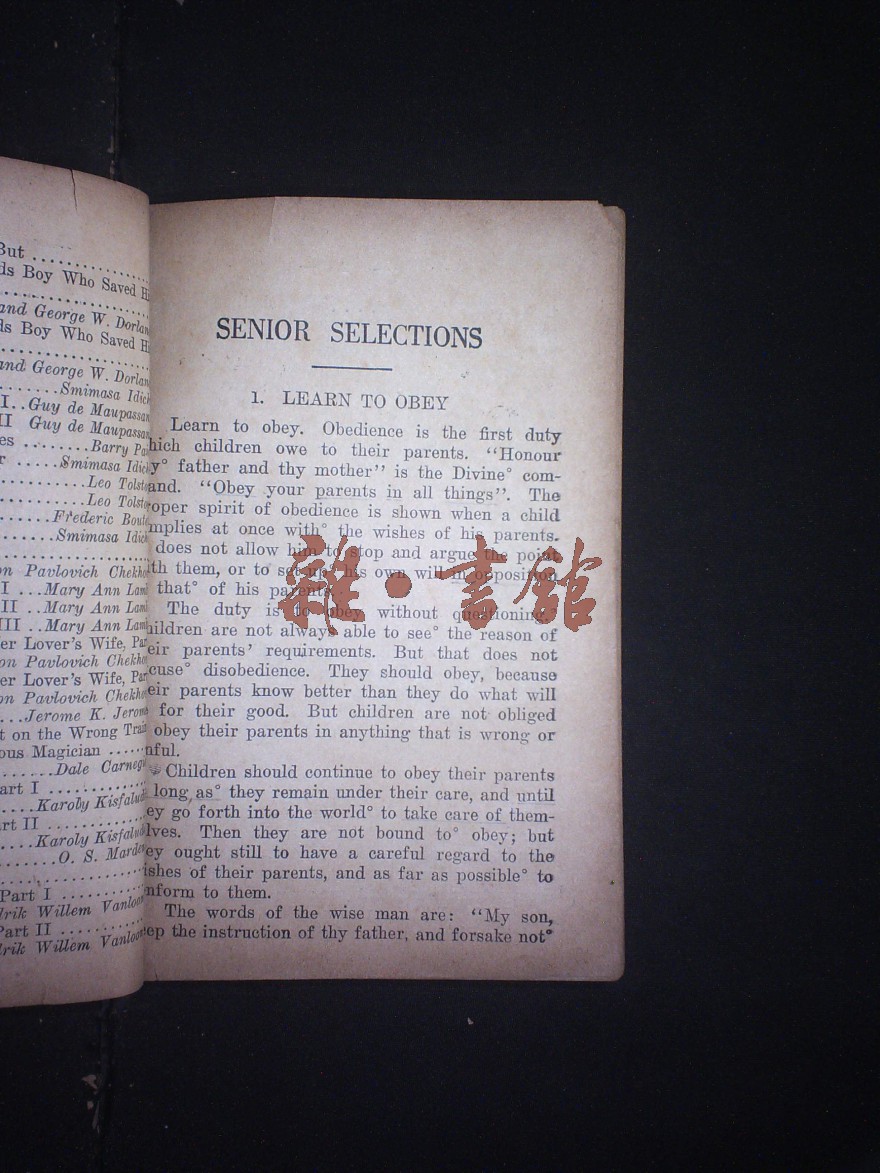 But ..............
ds Boy Who Saved Hi
..................
and George W. Dorlan
ds Boy Who Saved Hi
..................
and George W. Dorlan
........Smimasa Idich
I..Guy de Maupassan
II Guy de Maupassan
es ........Barry Pa
r .....Smimasa Idich
..........Leo Tolsto
..........Leo Tolsto
......Frederic Boute
.......Smimasa Idich
..................
on Pavlovich Chekho
I ...Mary Ann Lam
II ..Mary Ann Lam
III ..Mary Ann Lam
er Lover's Wife, Par
on Pavlovich Chekho
er Lover's Wife, Par
on Pavlovich Chekho
...Jerome K. Jerom
t on the Wrong Train
ous Magician ......
.......Dale Carneg
art I ............
....Karoly Kisfalud
rt II ............
....Karoly Kisfalud
........O. S. Marde
..................
Part I ..........
drik Willem Vanloon
Part II ..........
drik Willem Vanloon
SENIOR SELECTIONS
1. LEARN TO OBEY
Learn to obey. Obedience is the first duty
hich children owe to their parents. "Honour
y° father and thy mother" is the Divine° com-
and. "Obey your parents in all things". The
oper spirit of obedience is shown when a child
mplies at once with° the wishes of his parents.
does not allow him to stop and argue the point
th them, or to set up° his own will in opposition
that° of his parents.
The duty is to obey without questioning.°
hildren are not always able to see° the reason of
eir parents' requirements. But that does not
cuse° disobedience. They should obey, because
eir parents know better than they do what will
for their good. But children are not obliged
obey their parents in anything that is wrong or
nful.
Children should continue to obey their parents
long as° they remain under their care, and until
ey go forth into the world° to take care of them-
lves. Then they are not bound to° obey; but
ey ought still to have a careful regard to the
ishes of their parents, and as far as possible° to
nform to them.
The words of the wise man are: "My son,
ep the instruction of thy father, and forsake not°
雜·書館